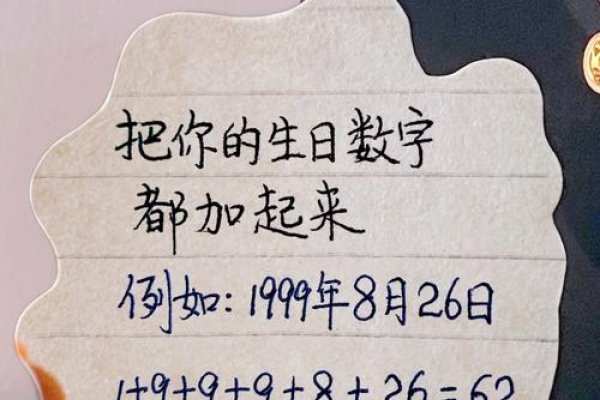 把你的生日数字
都加起来
例如:1999年8月26日
1+9+9+9+8+26=62